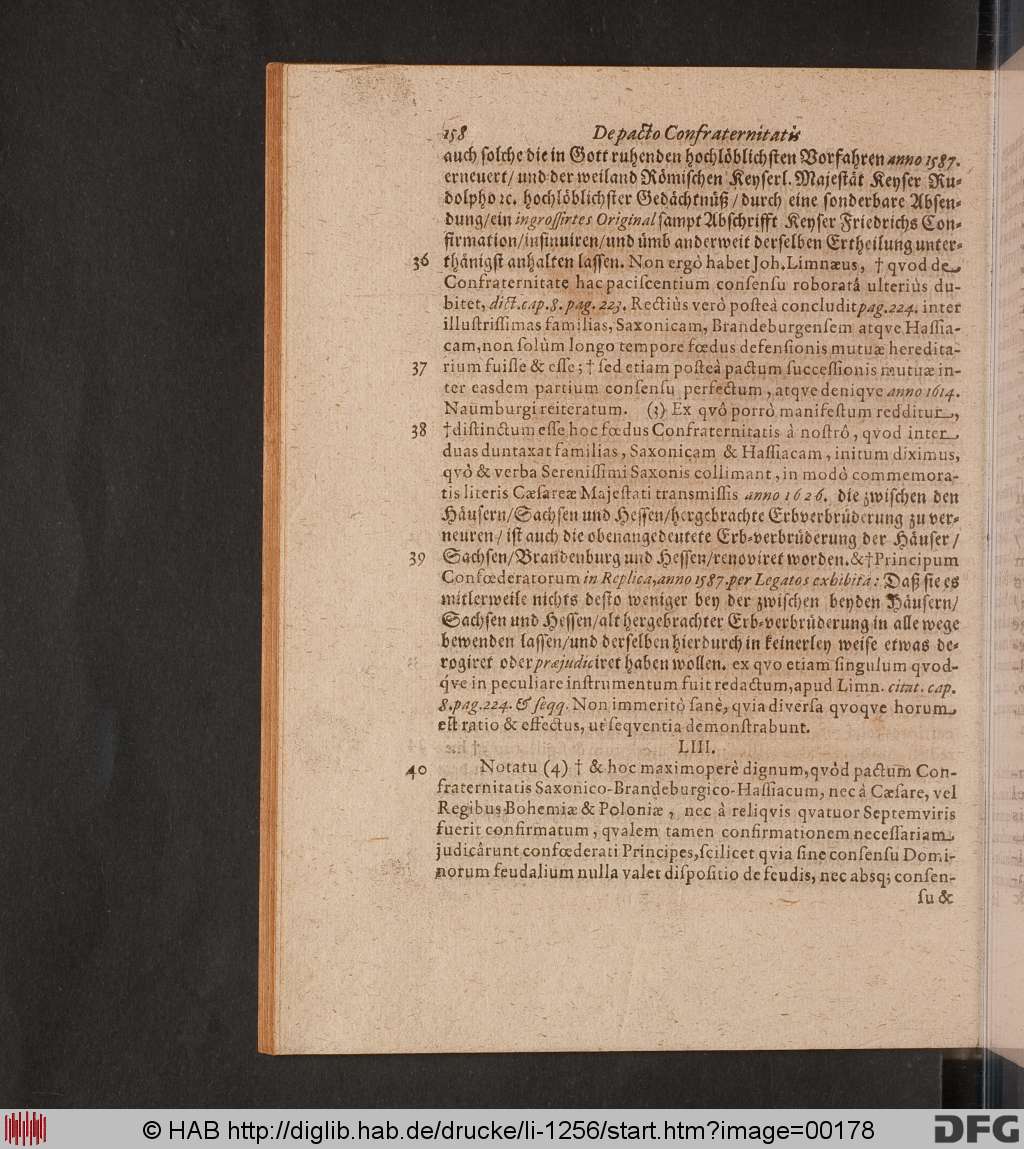 158 De pacto Confraternitatis
auch solche die in Gott ruhenden hochlöblichsten Vorfahren anno 1587.
erneuert/ und der weiland Römischen Keyserl. Majestät Keyser Ru-
dolpho ꝛc. hochlöblichster Gedächtnüß/ durch eine sonderbare Absen-
dung/ein ingrossirtes Original sampt Abschrifft Keyser Friedrichs Con-
firmation/insinuiren/und ümb anderweit derselben Ertheilung unter-
36 thänigst anhalten lassen. Non ergò habet Joh. Limnæus, † qvod de
Confraternitate hac paciscentium consensu roboratâ ulteriùs du-
bitet, dict. cap. 8. pag. 223. Rectiùs verò posteà concludit pag. 224. inter
illustrissimas familias, Saxonicam, Brandeburgensem atqve Hassia-
cam, non solùm longo tempore fœdus defensionis mutuæ heredita-
37 rium fuisse & esse; † sed etiam posteà pactum successionis mutuæ in-
ter easdem partium consensu perfectum, atqve deniqve anno 1614.
Naumburgi reiteratum. (3) Ex qvô porrò manifestum redditur,
38 †distinctum esse hoc fœdus Confraternitatis à nostrô, qvod inter
duas duntaxat familias, Saxonicam & Hassiacam, initum diximus,
qvò & verba Serenissimi Saxonis collimant, in modò commemora-
tis literis Cæsareæ Majestati transmissis anno 1626. die zwischen den
Häusern/Sachsen und Hessen/hergebrachte Erbverbrüderung zu ver-
neuren/ ist auch die obenangedeutete Erb-verbrüderung der Häuser/
39 Sachsen/Brandenburg und Hessen/renoviret worden. &†Principum
Confœderatorum in Replica, anno 1587. per Legatos exhibitâ: Daß sie es
mitlerweile nichts desto weniger bey der zwischen beyden Häusern/
Sachsen und Hessen/alt hergebrachter Erb-verbrüderung in alle wege
bewenden lassen/und derselben hierdurch in keinerley weise etwas de-
rogiret oder præjudiciret haben wollen. ex qvo etiam singulum qvod-
q́ve in peculiare instrumentum fuit redactum, apud Limn. citat. cap.
8. pag. 224. & seqq. Non immeritò sanè, qvia diversa qvoqve horum
est ratio & effectus, ut seqventia demonstrabunt.
LIII.
40 Notatu (4) † & hoc maximoperè dignum, qvòd pactum Con-
fraternitatis Saxonico-Brandeburgico-Hassiacum, nec à Cæsare, vel
Regibus Bohemiæ & Poloniæ, nec à reliqvis qvatuor Septemviris
fuerit confirmatum, qvalem tamen confirmationem necessariam
judicârunt confœderati Principes, scilicet qvia sine consensu Domi-
norum feudalium nulla valet dispositio de feudis, nec absq; consen-
su &
© HAB http://diglib.hab.de/drucke/li-1256/start.htm?image=00178
DFG